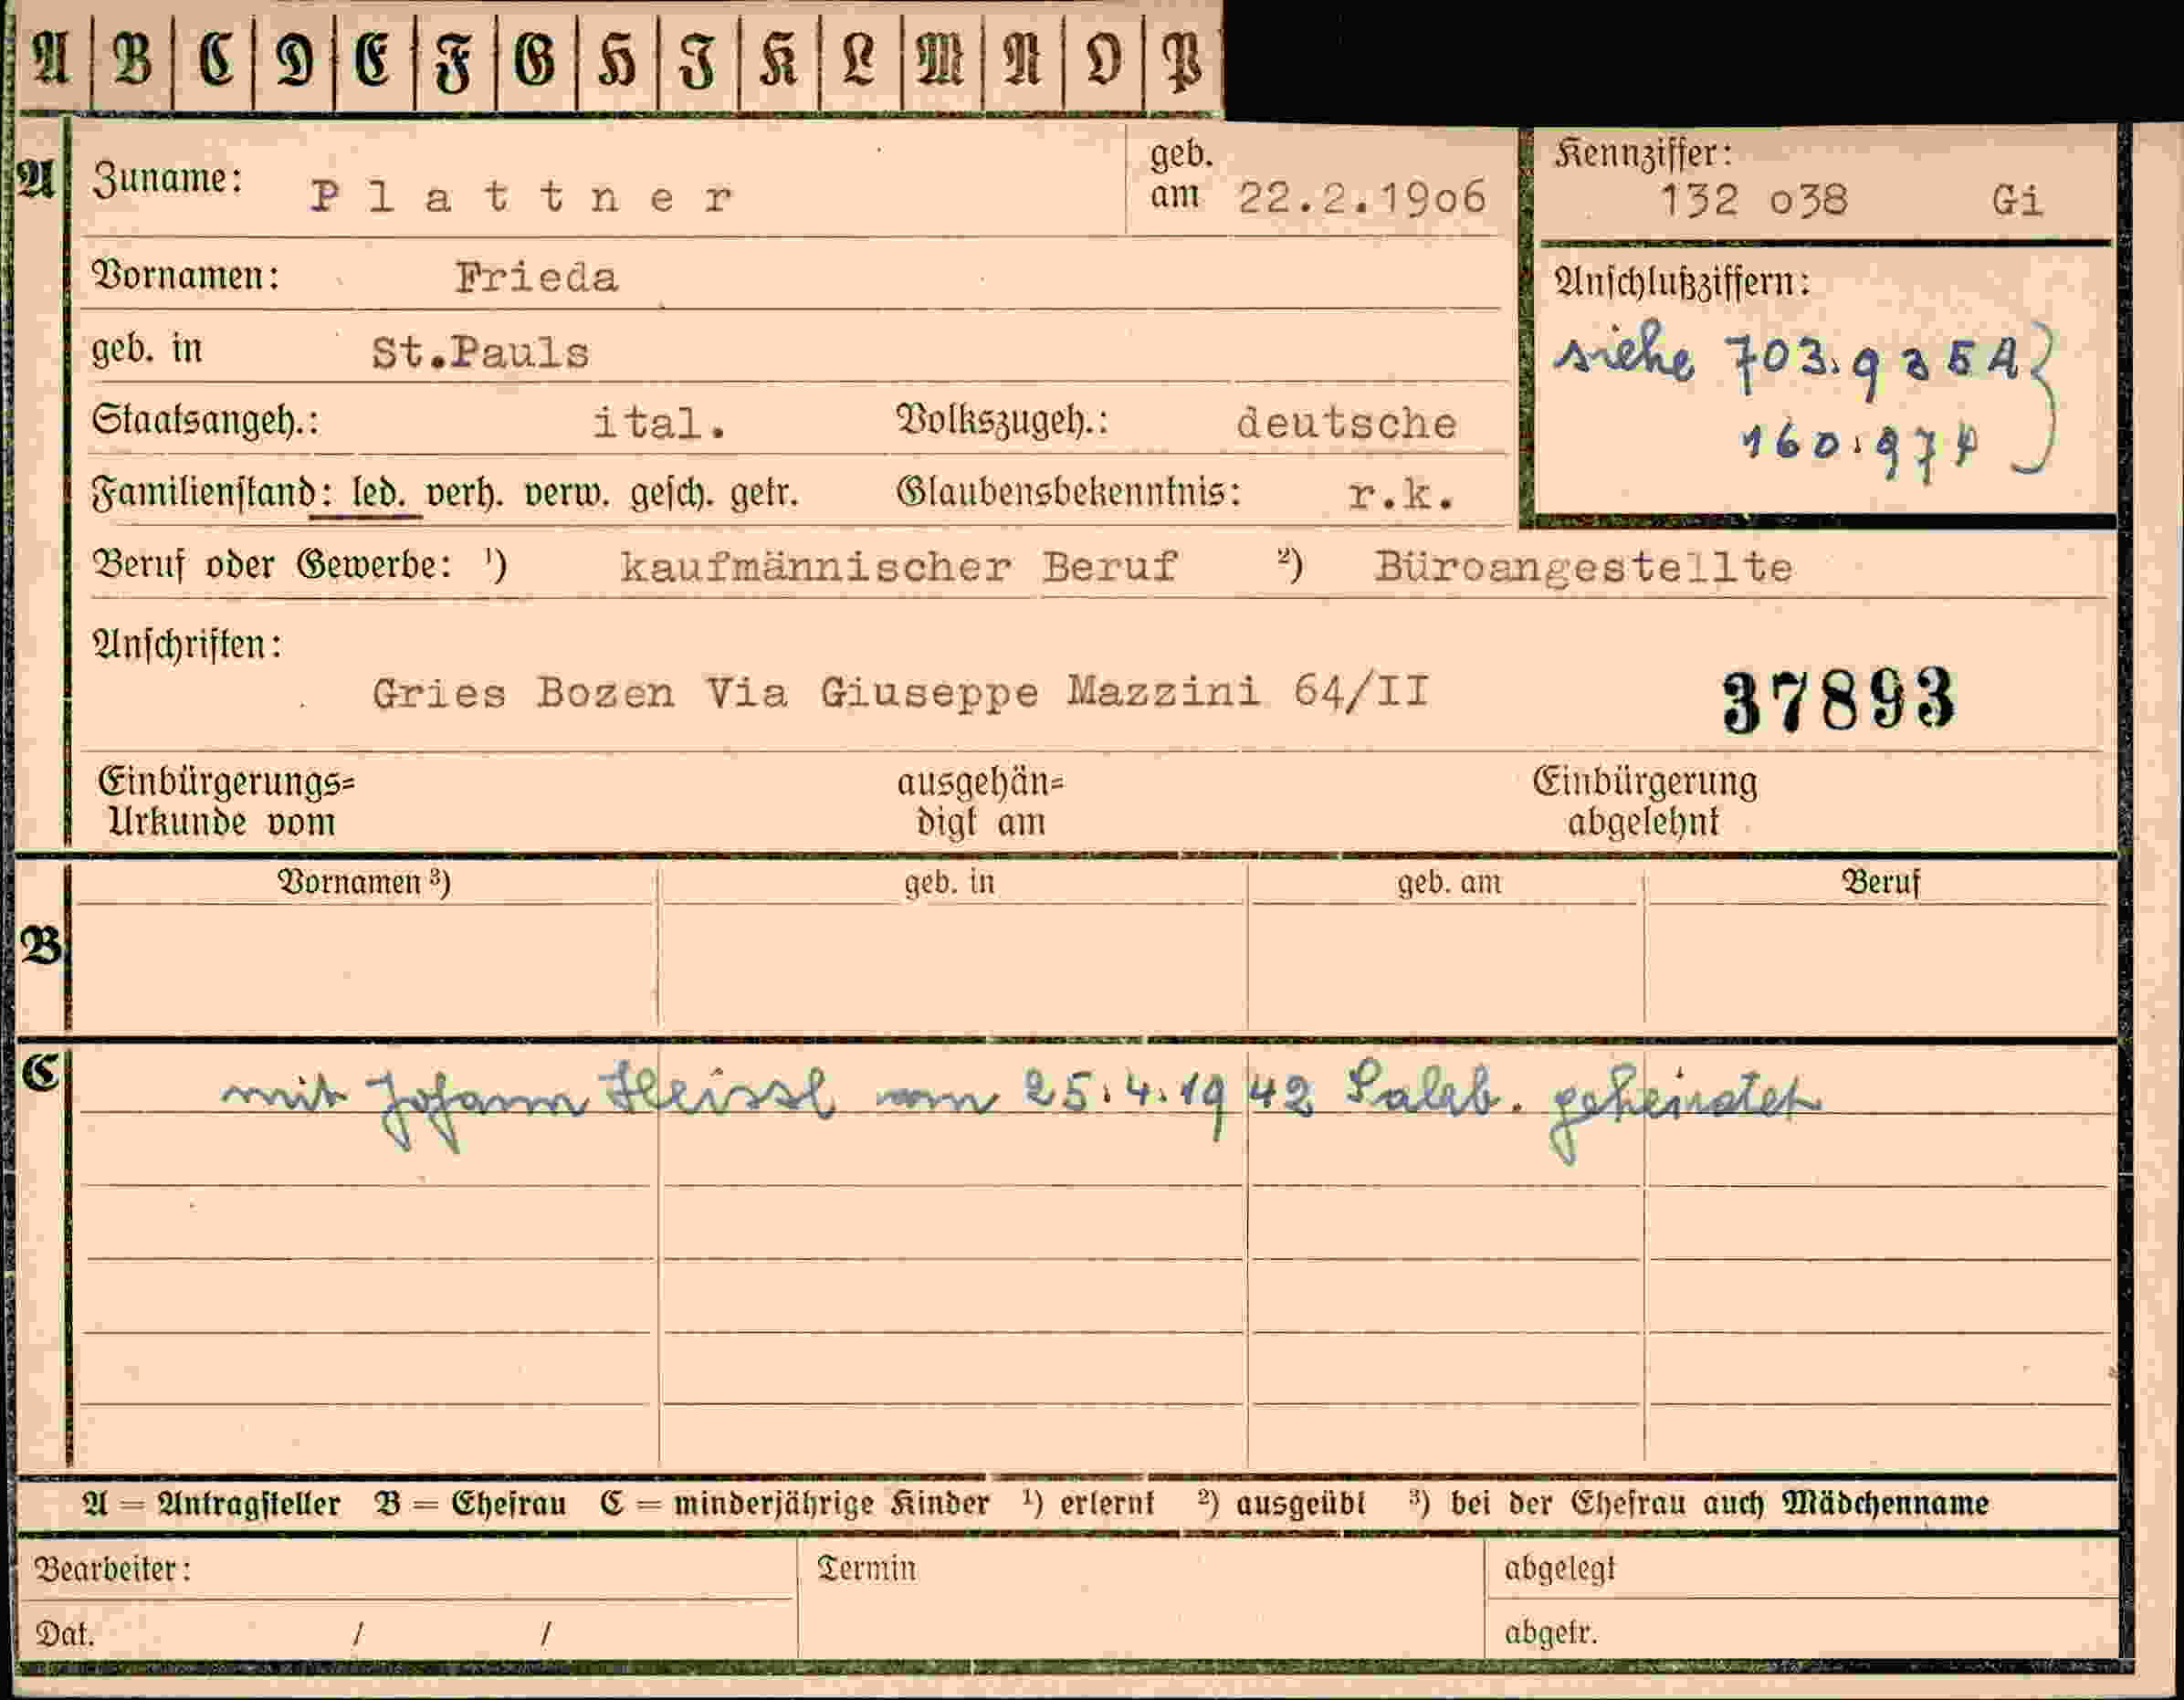 A B C D E F G H I K L M N O P
A Zuname: Plattner geb. am 22.2.19o6 Kennziffer: 132 o38 Gi
Vornamen: Frieda Anschlußziffern:
geb. in St.Pauls siehe 703.935A
Staatsangeh.: ital. Volkszugeh.: deutsche 160.974
Familienstand: led. verh. verw. gesch. getr. Glaubensbekenntnis: r.k.
Beruf oder Gewerbe: ¹) kaufmännischer Beruf ²) Büroangestellte
Anschriften:
Gries Bozen Via Giuseppe Mazzini 64/II 37893
Einbürgerungs= ausgehän= Einbürgerung
Urkunde vom digt am abgelehnt
Vornamen ³) geb. in geb. am Beruf
B
C mit Johann am 25.4.1942 geheiratet
A = Antragsteller B = Ehefrau C = minderjährige Kinder ¹) erlernt ²) ausgeübt ³) bei der Ehefrau auch Mädchenname
Bearbeiter: Termin abgelegt
Dat. / / abgetr.